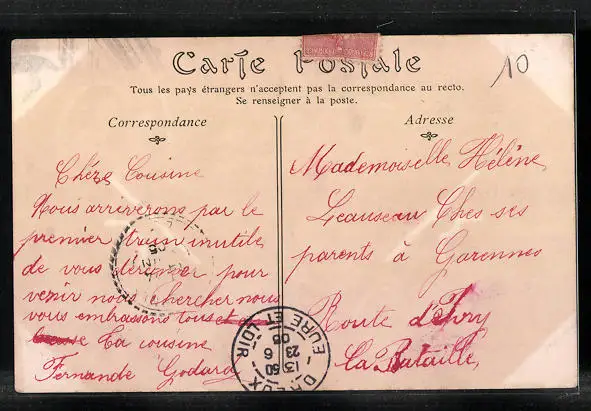 Carte Postale
10
Tous les pays étrangers n'acceptent pas la correspondance au recto.
Se renseigner à la poste.
Correspondance
Chère Cousine
Nous arriverons par le
premier train inutile
de vous déranger pour
venir nous chercher nous
vous embrassons tous et
Ta cousine
Fernande Godard
Adresse
Mademoiselle Hélène
Leauseau Ches ses
parents à Garennes
Route d'Ivry
La Bataille
DREUX
EURE ET LOIR
13 50
23 6
05